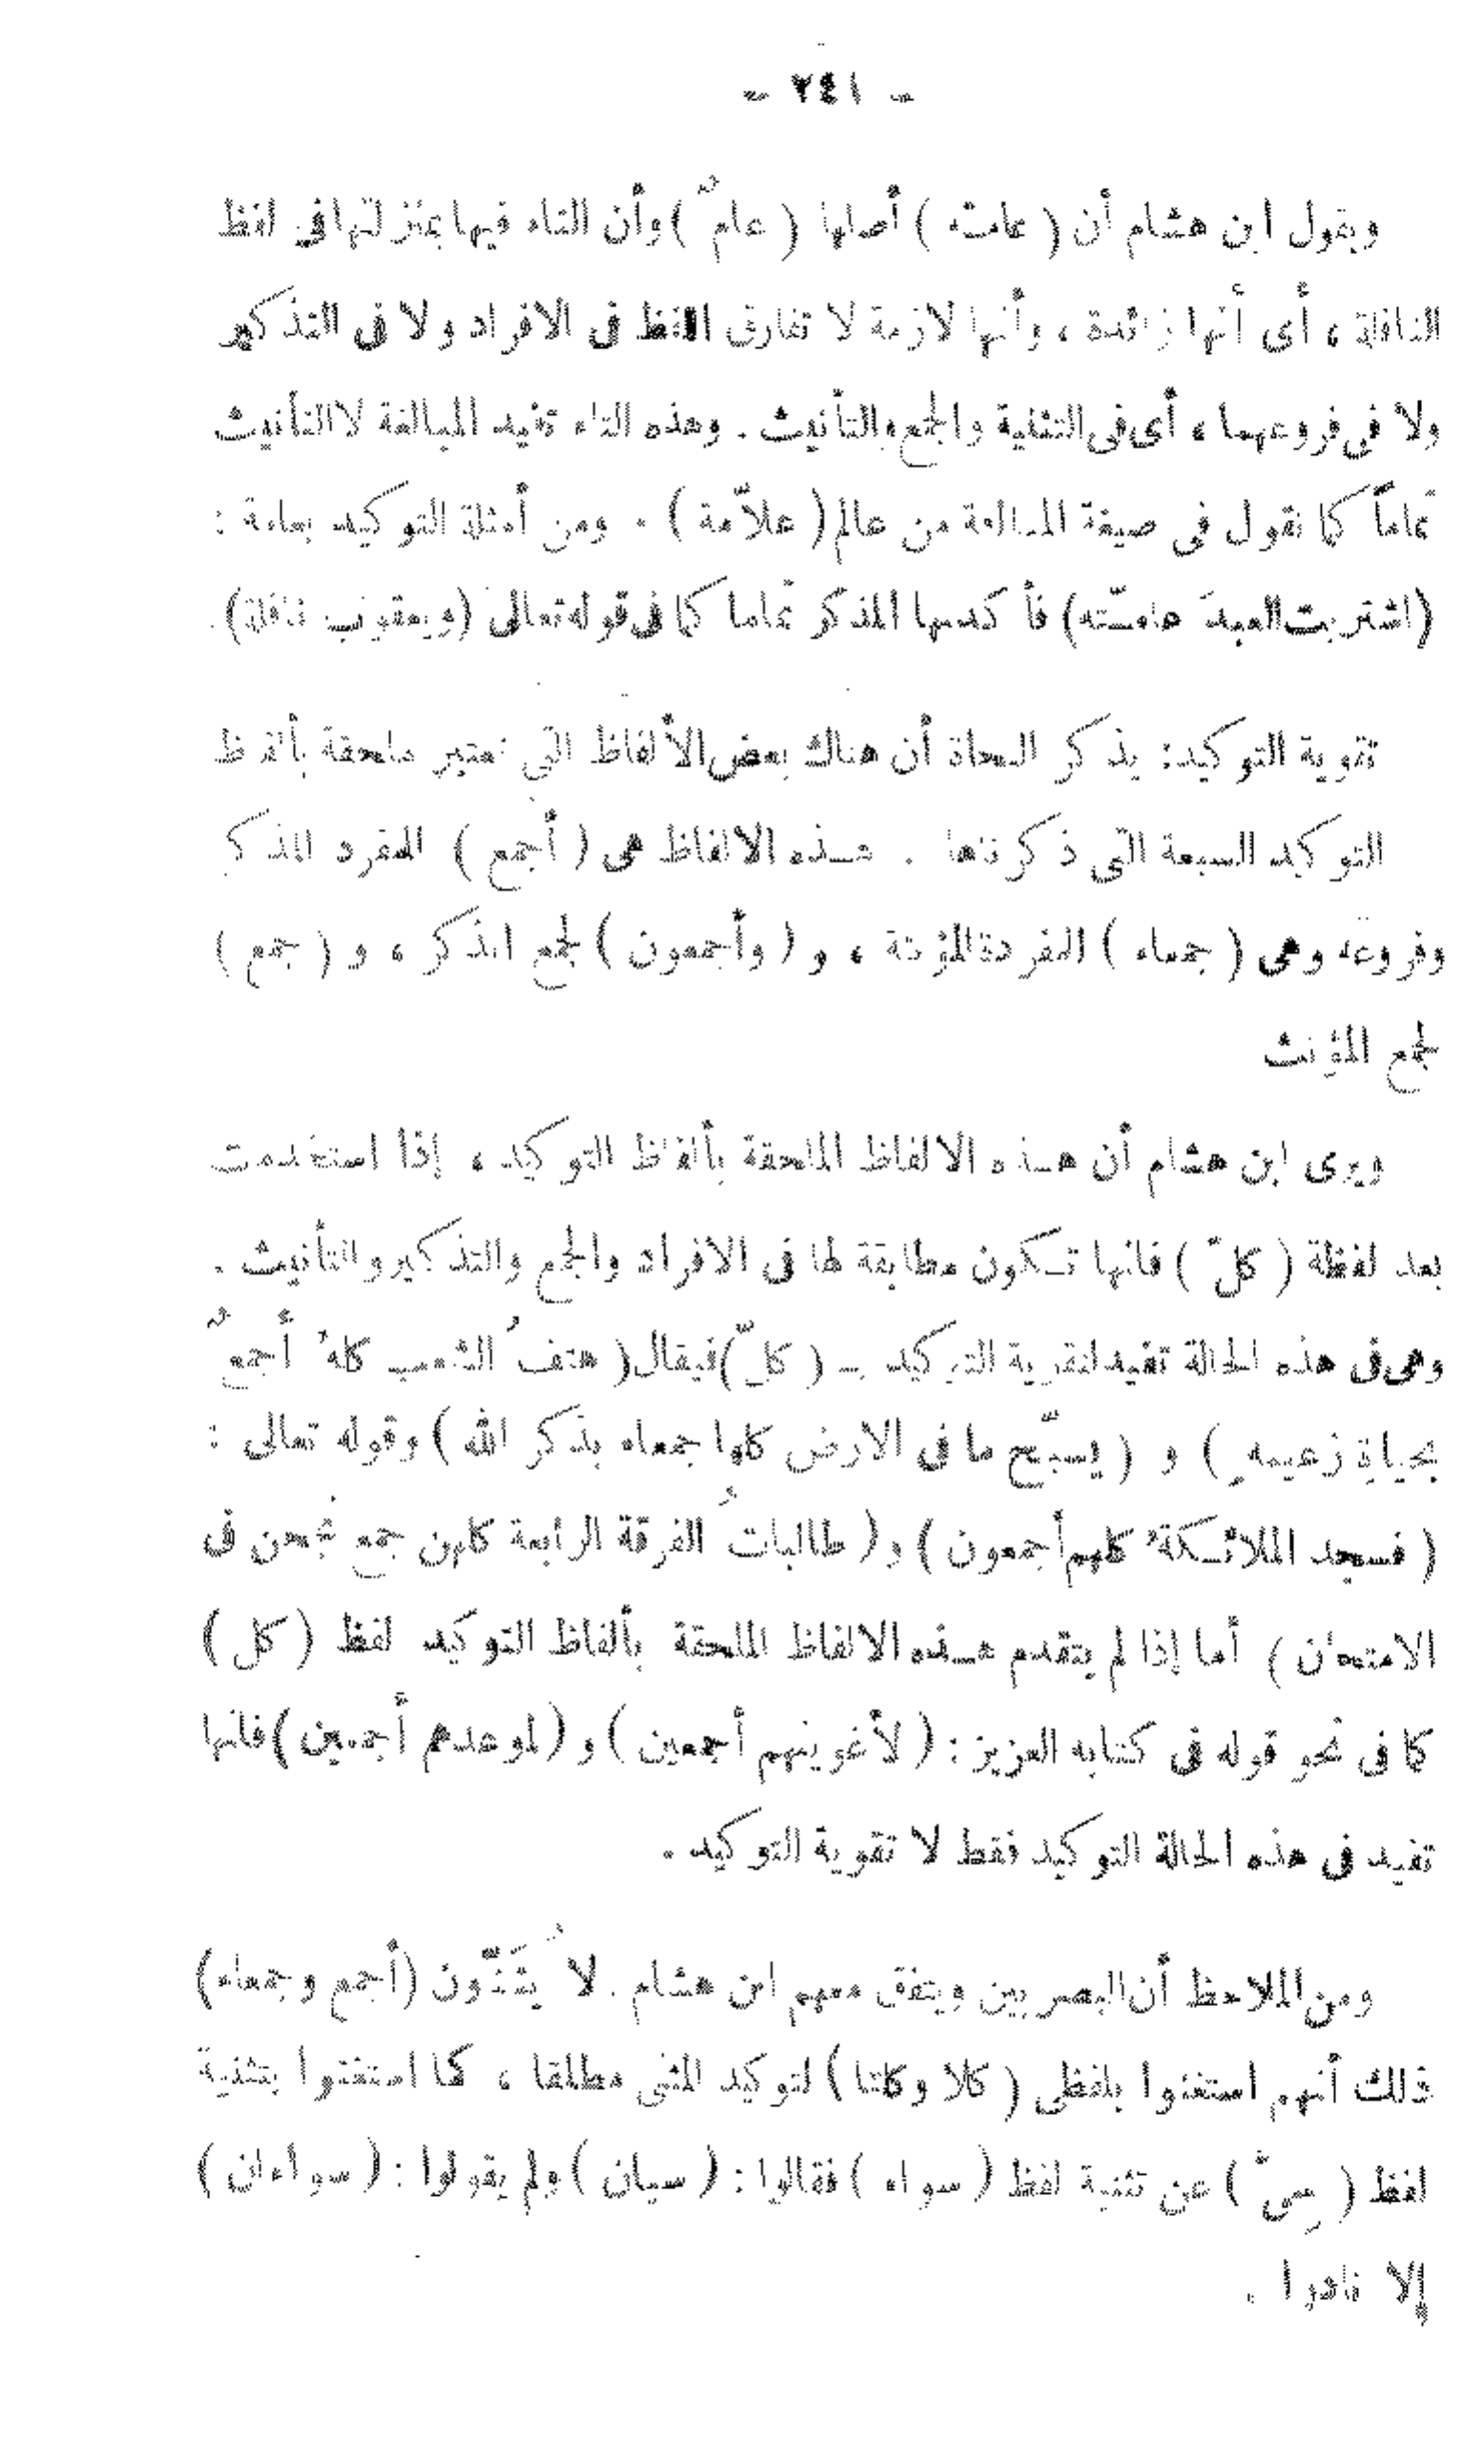 - ٢٤١ -
ويقول ابن هشام أن ( عامة ) أصلها ( عامٌ ) وأن التاء فيها بمنزلتها في لفظ
النافلة ، أى أنها زائدة ، وأنها لازمة لا تفارق اللفظ فى الافراد ولا فى التذكير
ولا فى فروعهما ، أى فى التثنية والجمع والتأنيث . وهذه التاء تفيد المبالغة لا التأنيث
تماماً كما نقول فى صيغة المبالغة من عالم ( علاّمة ) . ومن أمثلة التوكيد بعامة :
(اشتريت العبدَ عامـّته) فأكدسها المذكر تماما كما فى قوله تعالى (ويعقوب نافلة).
تقوية التوكيد: يذكر النحاة أن هناك بعض الألفاظ التي تعتبر ملحقة بألفاظ
التوكيد السبعة التي ذكرناها . هـذه الالفاظ هى ( أجمع ) المفرد المذكر
وفروعه وهى ( جمعاء ) المفردة المؤنثة ، و ( وأجمعون ) لجمع المذكر ، و ( جمع )
لجمع المؤنث
ويرى ابن هشام أن هـذه الالفاظ الملحقة بألفاظ التوكيد ، إذا استخدمت
بعد لفظة ( كلّ ) فانها تـكون مطابقة لها فى الافراد والجمع والتذكير والتأنيث .
وهى فى هذه الحالة تفيد لتقوية التوكيد بـ ( كلّ ) فيقال ( هتفُ الشعب كلهُ أجمعٌ
بحياةِ زعيمهِ ) و ( يسبّح ما فى الارض كلها جمعاء بذكر الله ) وقوله تعالى :
( فسجد الملائـكةُ كلهم أجمعون ) و ( طالباتُ الفرقة الرابعة كلهن جمع نجحن فى
الامتحان ) أما إذا لم يتقدم هـذه الالفاظ الملحقة بألفاظ التوكيد لفظ ( كل )
كما فى نحو قوله فى كتابه العزيز : ( لأغوينهم أجمعين ) و ( لموعدهم أجمعين ) فانها
تفيد فى هذه الحالة التوكيد فقط لا تقوية التوكيد .
ومن الملاحظ أن البصريين ويتفق معهم ابن هشام . لا يُثَنّون (أجمع وجمعاء)
ذلك أنهم استغنوا بلفظى ( كلا وكلتا ) لتوكيد المثنى مطلقا ، كما استغنوا بتثنية
لفظ ( سِىّ ) عن تثنية لفظ ( سواء ) فقالوا : ( سيان ) ولم يقولوا : ( سواءان )
إلا نادرا .